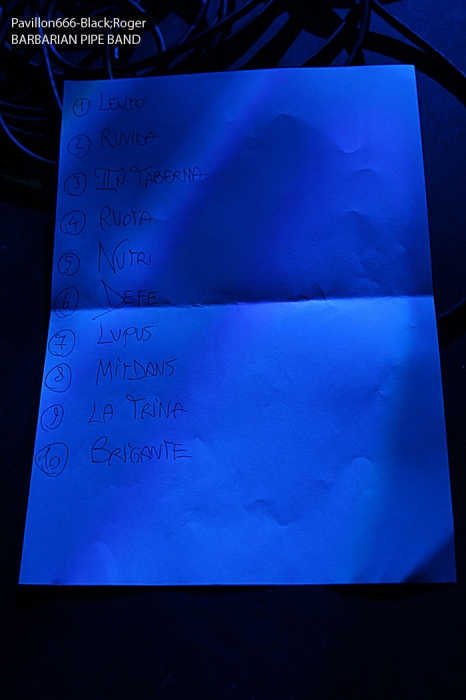 Pavillon666-Black;Roger
BARBARIAN PIPE BAND
1 LENTO
2 RUVIDA
3 IN TABERNA
4 RUOTA
5 NUTRI
6 DEFE
7 LUPUS
8 MITDANS
9 LA TRINA
10 BRIGANTE